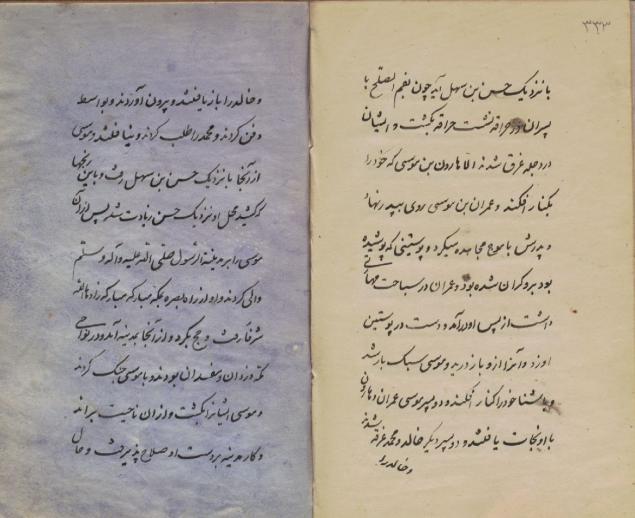 ۳۳۳
با نزدیک حسن بن سهل آید چون بفم الصلح با
پسران در حراقه نشست حراقه بگشت و ایشان
در دجله غرق شدند الا هارون بن موسی که خود را
بکنار افکند و عمران بن موسی روی بپدر نهاد
و پدرش با موج مجاهده میکرد و پوستینی که پوشیده
بود برو گران شده بود و عمران در سباحت مهارتی
داشت از پس او درآمد و دست در پوستین
او زد و آنرا ازو باز درید و موسی سبک بار شد
و باشنا خود را کنار افکند و دو پسر موسی عمران و هارون
با او نجات یافتند و دو پسر دیگر خالد و محمد غرقه شدند
و خالد را
و خالد را باز یافتند و بیرون آوردند و بواسط
دفن کردند و محمد را طلب کردند و نیافتند و موسی
از آنجا بنزدیک حسن بن سهل رفت و باین رنجها
که کشید محل او نزدیک حسن زیادت شد پس از آن
موسی را بر مدینة الرسول صلی الله علیه و آله و سلم
والی کردند و او از راه بصره بمکه مبارکه زادها الله
شرفا رفت و حج بکرد و از آنجا بمدینه آمد و در نواحی
مکه دزدان و مفسدان بودند و با موسی جنگ کردند
و موسی ایشانرا بکشت و از آن ناحیت براند
و کار مدینه بر دست او صلاح پذیرفت و حال